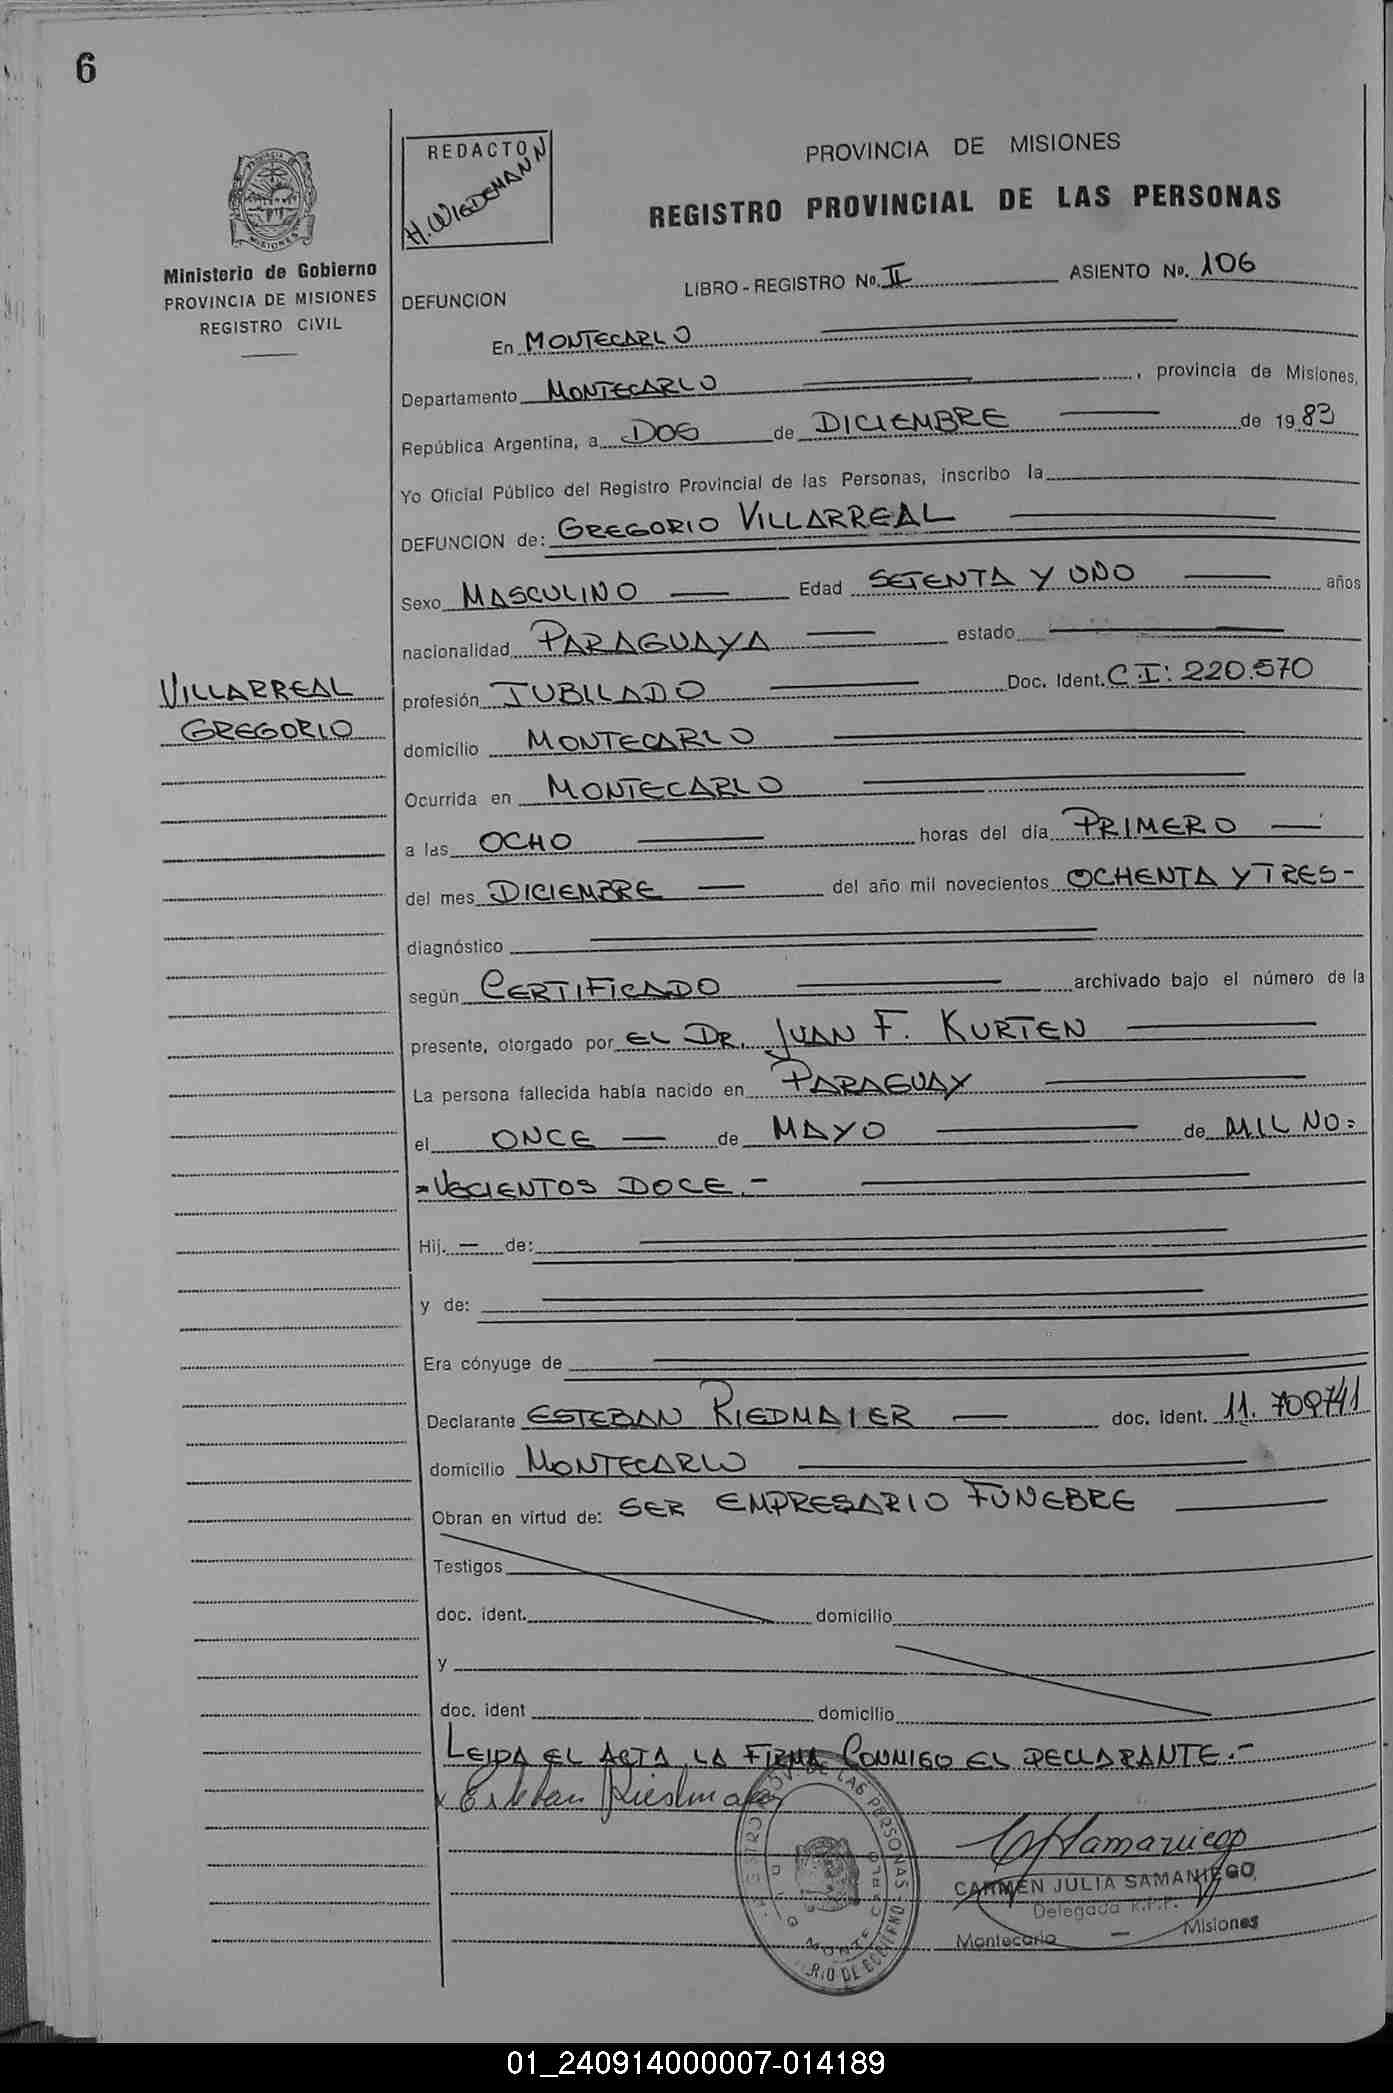 6
REDACTO
H. WIEDEMANN
PROVINCIA DE MISIONES
REGISTRO PROVINCIAL DE LAS PERSONAS
Ministerio de Gobierno
PROVINCIA DE MISIONES
REGISTRO CIVIL
LIBRO - REGISTRO No. II ASIENTO No. 106
DEFUNCION
En MONTECARLO
Departamento MONTECARLO, provincia de Misiones,
República Argentina, a DOS de DICIEMBRE de 1983
Yo Oficial Público del Registro Provincial de las Personas, inscribo la
DEFUNCION de: GREGORIO VILLARREAL
Sexo MASCULINO Edad SETENTA Y UNO años
nacionalidad PARAGUAYA estado
VILLARREAL
GREGORIO
profesión JUBILADO Doc. Ident. C.I: 220.570
domicilio MONTECARLO
Ocurrida en MONTECARLO
a las OCHO horas del día PRIMERO
del mes DICIEMBRE del año mil novecientos OCHENTA Y TRES -
diagnóstico
según CERTIFICADO archivado bajo el número de la
presente, otorgado por EL DR. JUAN F. KURTEN
La persona fallecida había nacido en PARAGUAY
el ONCE de MAYO de MIL NO=
=VECIENTOS DOCE.-
Hij. — de:
y de:
Era cónyuge de
Declarante ESTEBAN RIEDMAIER doc. ident. 11. 709741
domicilio MONTECARLO
Obran en virtud de: SER EMPRESARIO FUNEBRE
Testigos
doc. ident. domicilio
y
doc. ident domicilio
LEIDA EL ACTA, LA FIRMA CONMIGO EL DECLARANTE.-
x Esteban Riedmaier
CARMEN JULIA SAMANIEGO
Delegada R.P.P.
Montecarlo — Misiones
01_240914000007-014189